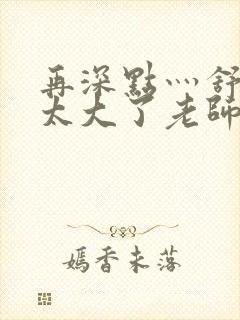 再深點灬舒
太大了老師
嫣香未落